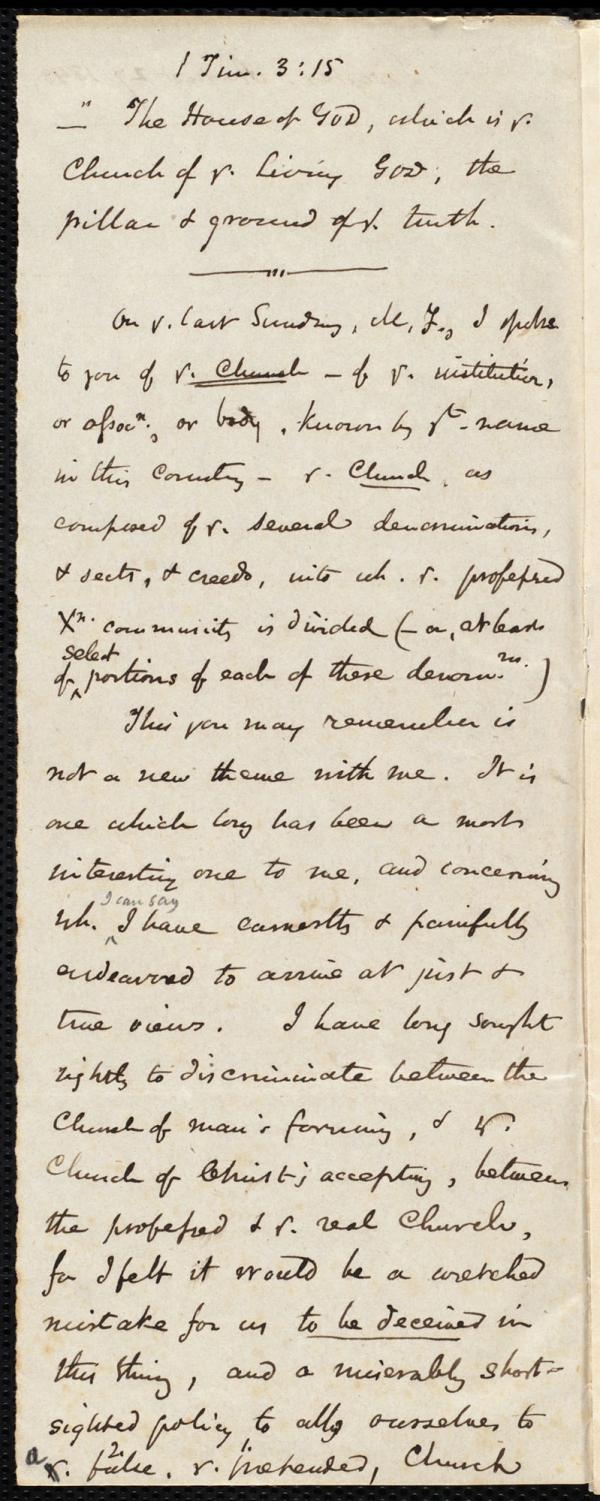 1 Tim. 3:15
—" The House of GOD, which is y.
Church of y. Living GOD, the
pillar & ground of y. truth.
On y. last Sunday, M, F., I spoke
to you of y. Church – of y. institution,
or assocn., or body, known by yt. name
in this Country – y. Church, as
composed of y. several denominations,
& sects, & creeds, into wh. y. professed
Xn. community is divided (– or, at least
select
of ‸ portions of each of these denomns.)
This you may remember is
not a new theme with me. It is
one which long has been a most
interesting one to me, and concerning
I can say
wh. ‸ I have earnestly & painfully
endeavored to arrive at just &
true views. I have long sought
rightly to discriminate between the
Church of man's forming, & y.
Church of Christ's accepting, between
the professed & y. real Church,
for I felt it would be a wretched
mistake for us to be deceived in
this thing, and a miserably short-
sighted policy to ally ourselves to
a y. 2 false, y. 1 pretended, Church